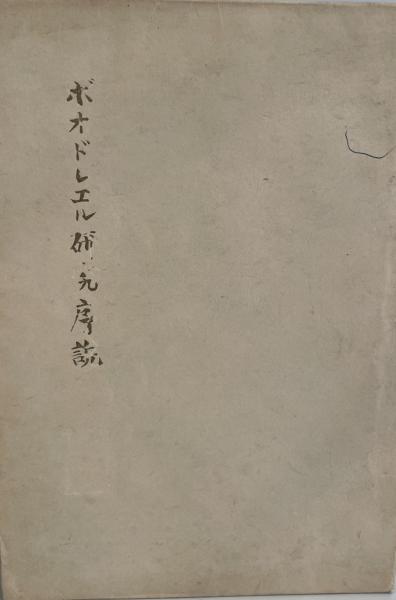 ボオドレエル研究序説